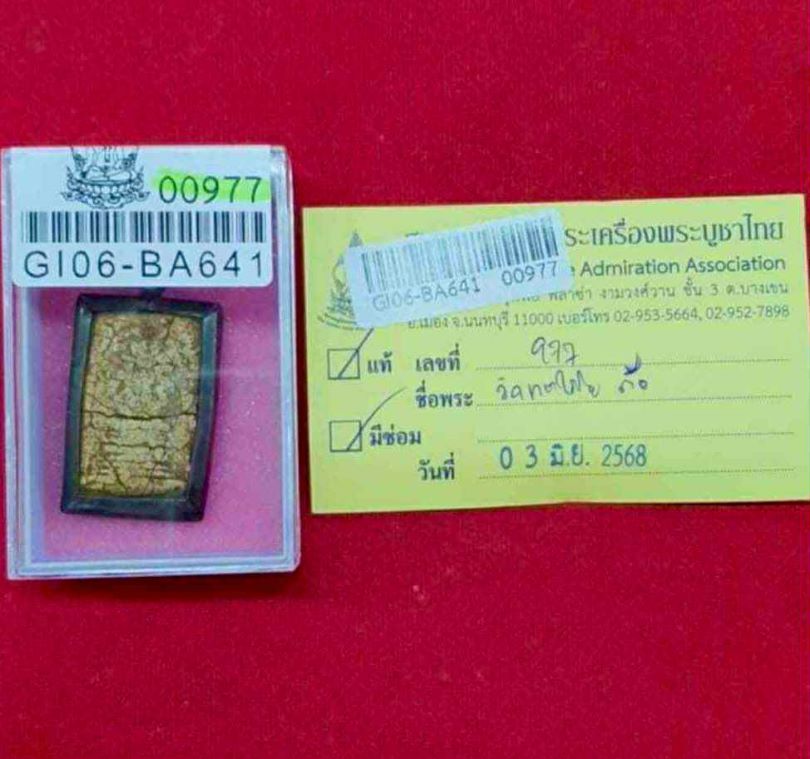 00977
GI06-BA641
ระเครื่องพระบูชาไทย
Admiration Association
GI06-BA641 00977
พลาซ่า งามวงศ์วาน ชั้น 3 ต.บางเขน
อ.เมือง จ.นนทบุรี 11000 เบอร์โทร 02-953-5664, 02-952-7898
แท้ เลขที่ ๆๆๆ
ชื่อพระ
มีซ่อม
วันที่ 0 3 มิ.ย. 2568